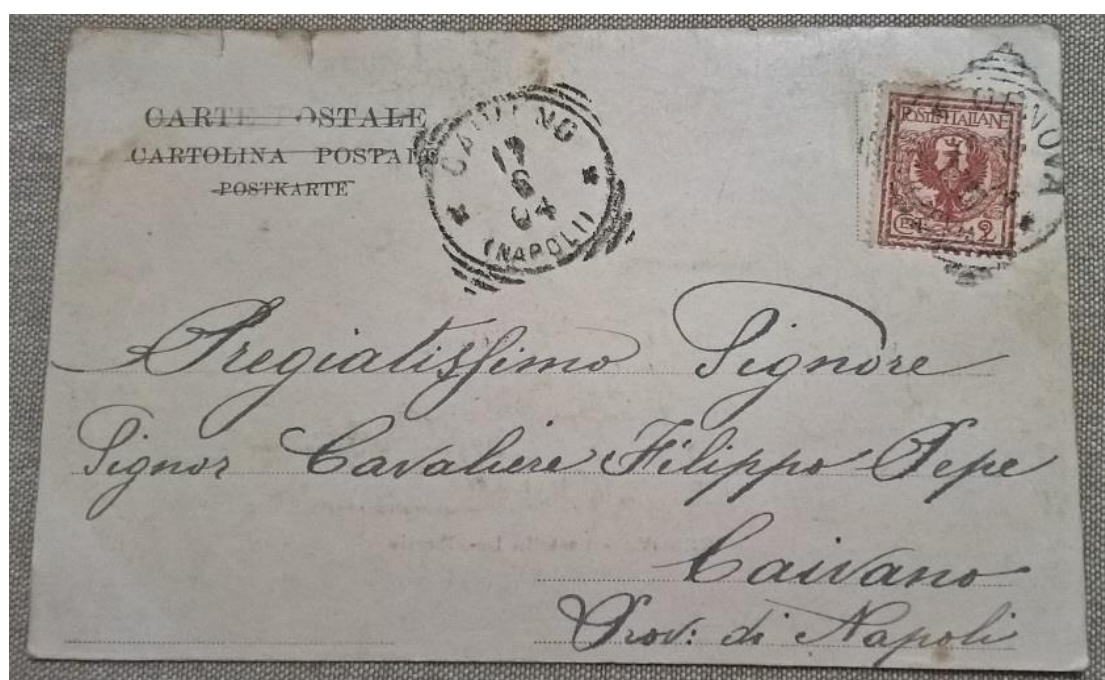 CARTE POSTALE
CARTOLINA POSTALE
POSTKARTE
CAIVANO
17
6
04
(NAPOLI)
POSTE ITALIANE
CENT. 2
GENOVA
Pregiatissimo Signore
Signor Cavaliere Filippo Pepe
Caivano
Prov: di Napoli